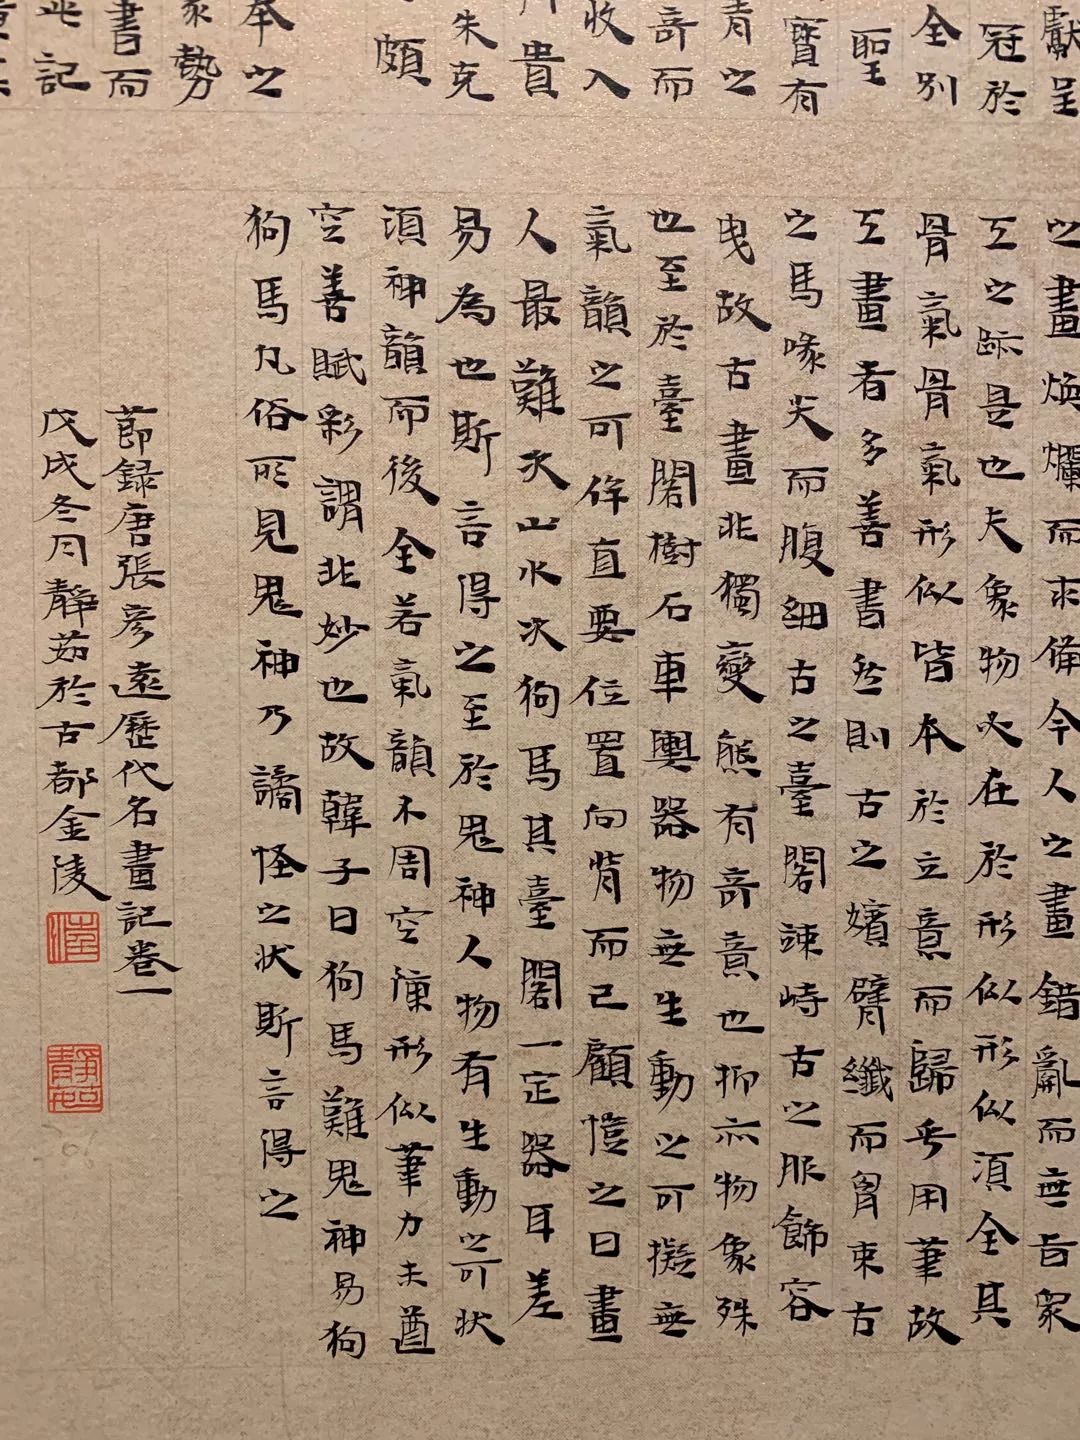 獻呈
冠於
全別
聖
寶有
青之
奇而
收入
貴
朱克
頗
奉之
家勢
書而
此記
之畫煥爛而求備今人之畫錯亂而無旨眾
工之跡是也夫象物必在於形似形似須全其
骨氣骨氣形似皆本於立意而歸乎用筆故
工畫者多善書然則古之嬪擘纖而胷束古
之馬喙尖而腹細古之臺閣竦峙古之服飾容
曳故古畫非獨變態有奇意也抑亦物象殊
也至於臺閣樹石車輿器物無生動之可擬無
氣韻之可侔直要位置向背而已顧愷之曰畫
人最難次山水次狗馬其臺閣一定器耳差
易為也斯言得之至於鬼神人物有生動之可狀
須神韻而後全若氣韻不周空陳形似筆力未遒
空善賦彩謂非妙也故韓子曰狗馬難鬼神易狗
狗馬凡俗所見鬼神乃譎怪之狀斯言得之
節錄唐張彥遠歷代名畫記卷一
戊戌冬月靜茹於古都金陵